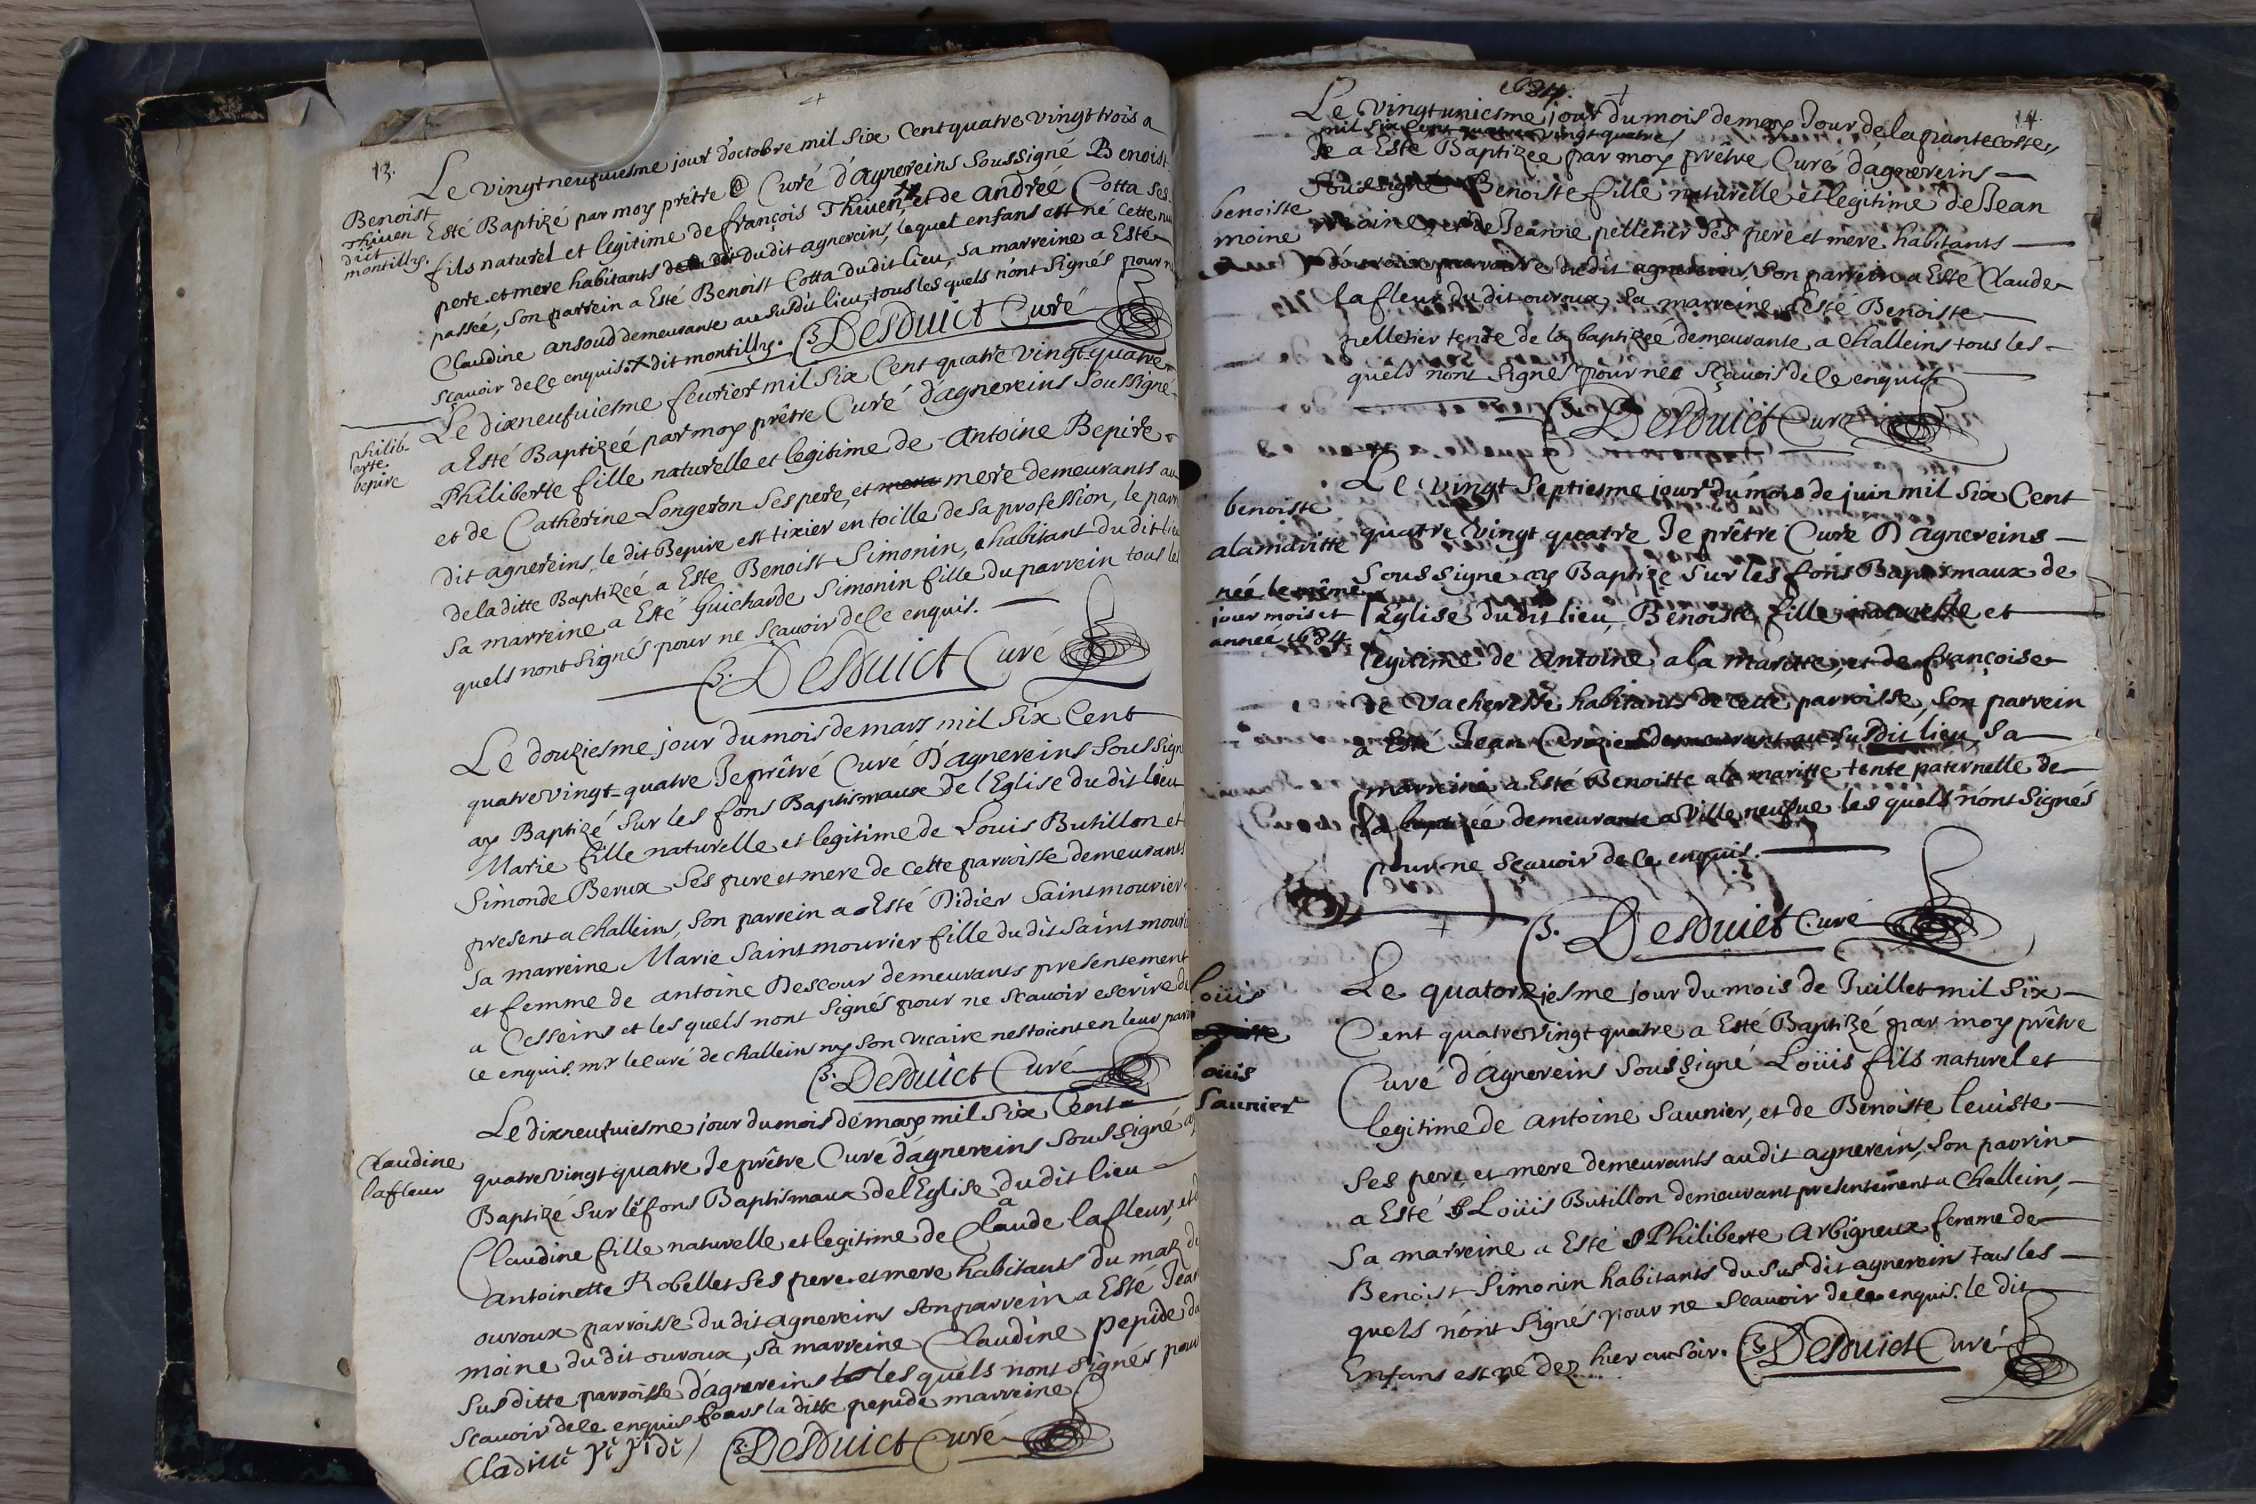 13.
Le vingtneufuiesme jour d'octobre mil six Cent quatre vingt trois a
Benoist
Thiuen
dict
montilly.
Esté Baptizé par moy prêtre Curé d'Agnereins Soussigné Benoist
fils naturel et legitime de françois Thiuen et de andreé Cotta ses
pere et mere habitants dudit agnereins, lequel enfans est né cette nuit
passeé, son parrein a Esté Benoist Cotta dudit lieu, sa marreine a Esté
Claudine ansoud demeurante au susdit lieu, tous les quels n'ont signés pour n
sçauoir de ce enquis. dit montilly. B. Desduict Curé
philib-
erte
bepire
Le dixneufuiesme feurier mil six Cent quatre vingt quatre
a Esté Baptizeé par moy prêtre Curé d'agnereins soussigné
Philiberte fille naturelle et legitime de Antoine Bepire
et de Catherine Longeron ses pere, et mere demeurants au
dit agnereins, le dit Bepire est tixier en toille de sa profession, le parr
de la ditte Baptizeé a Esté Benoist Simonin, habitant du dit lieu
sa marreine a Esté Guicharde Simonin fille du parrein tous les
quels nont signés pour ne sçauoir de ce enquis.
B. Desduict Curé
Le douziesme jour du mois de mars mil six Cent
quatre vingt-quatre Je prêtré Curé D'agnereins soussign
ay Baptizé sur lés fons Baptismaux de l'Eglise du dit lieu
Marie fille naturelle et legitime de Louis Butillon et
Simonde Berux ses pere et mere de cette parroisse demeurants
present a challeins, son parrein a Esté Didier saint mourier
sa marreine Marie saint mourier fille du dit saint mouri
et femme de antoine Descour demeurants presentement
a Cesseins et les quels nont signés pour ne scauoir escrire de
ce enquis. mr le curé de challeins ny son vicaire nestoient en leur parro
B. Desduict Curé
Claudine
lafleur
Le dixneufuiesme jour du mois de may mil six Cent
quatre vingt quatre Je prêtre Curé d'agnereins soussigné ay
Baptizé sur lés fons Baptismaux de l'Eglise du dit lieu
Claudine fille naturelle et legitime de Claude lafleur, et d
antoinette Robellet ses pere et mere habitants du maz d
ouroux parroisse du dit agnereins son parrein a Esté Jean
moine du dit ouroux, sa marreine Claudine pepide da
susditte parroisse d'agnereins les quels nont signés pour
scauoir de ce enquis la ditte pepide marreine.
B. Desduict Curé
1684.
14.
Le vingtuniesme jour du mois de may Jour de la pantecoste,
mil six Cent quatre vingt quatre
a Esté Baptizeé par moy prêtre Curé d'agnereins
soussigné Benoiste fille naturelle et legitime de Jean
benoiste
moine
moine, et de Jeanne pelletier ses pere et mere habitants
d'ouroux parroisse dudit agnereins, son parrein a Esté Claude
lafleur du dit ouroux, sa marreine a Esté Benoiste
pelletier tente de la baptizeé demeurante a challeins tous les
quels nont signés pour ne sçauoir de ce enquis
B. Desduict Curé
benoiste
alamaritte
née le même
jour mois et
année 1684
Le vingt septiesme jour du mois de juin mil six Cent
quatre vingt quatre Je prêtre Curé D'agnereins
soussigné ay Baptizé sur les fons Baptismaux de
l'Eglise du dit lieu, Benoiste fille naturelle et
legitime de Antoine a la maritte, et de françoise
de vacherette habitants de cette parroisse, son parrein
a Esté Jean demeurant au susdit lieu, sa
marreine a Esté Benoitte a la maritte tente paternelle de
la baptizeé demeurante a ville neufue les quels n'ont signés
pour ne sçauoir de ce enquis.
B. Desduict Curé
Loüis
Loüis
Saunier
Le quatorziesme jour du mois de Juillet mil six
Cent quatre vingt quatre a Esté Baptizé par moy prêtre
Curé d'Agnereins soussigné Loüis fils naturel et
legitime de antoine saunier, et de Benoiste leuiste
ses pere, et mere demeurants audit agnerein, son parrin
a Esté Loüis Butillon demeurant presentement a Challeins,
sa marreine a Esté Philiberte Arbigneux femme de
Benoist Simonin habitants du susdit agnerein tous les
quels n'ont signés pour ne scauoir de ce enquis. le dit
Enfans est né dez hier au soir. B. Desduict Curé